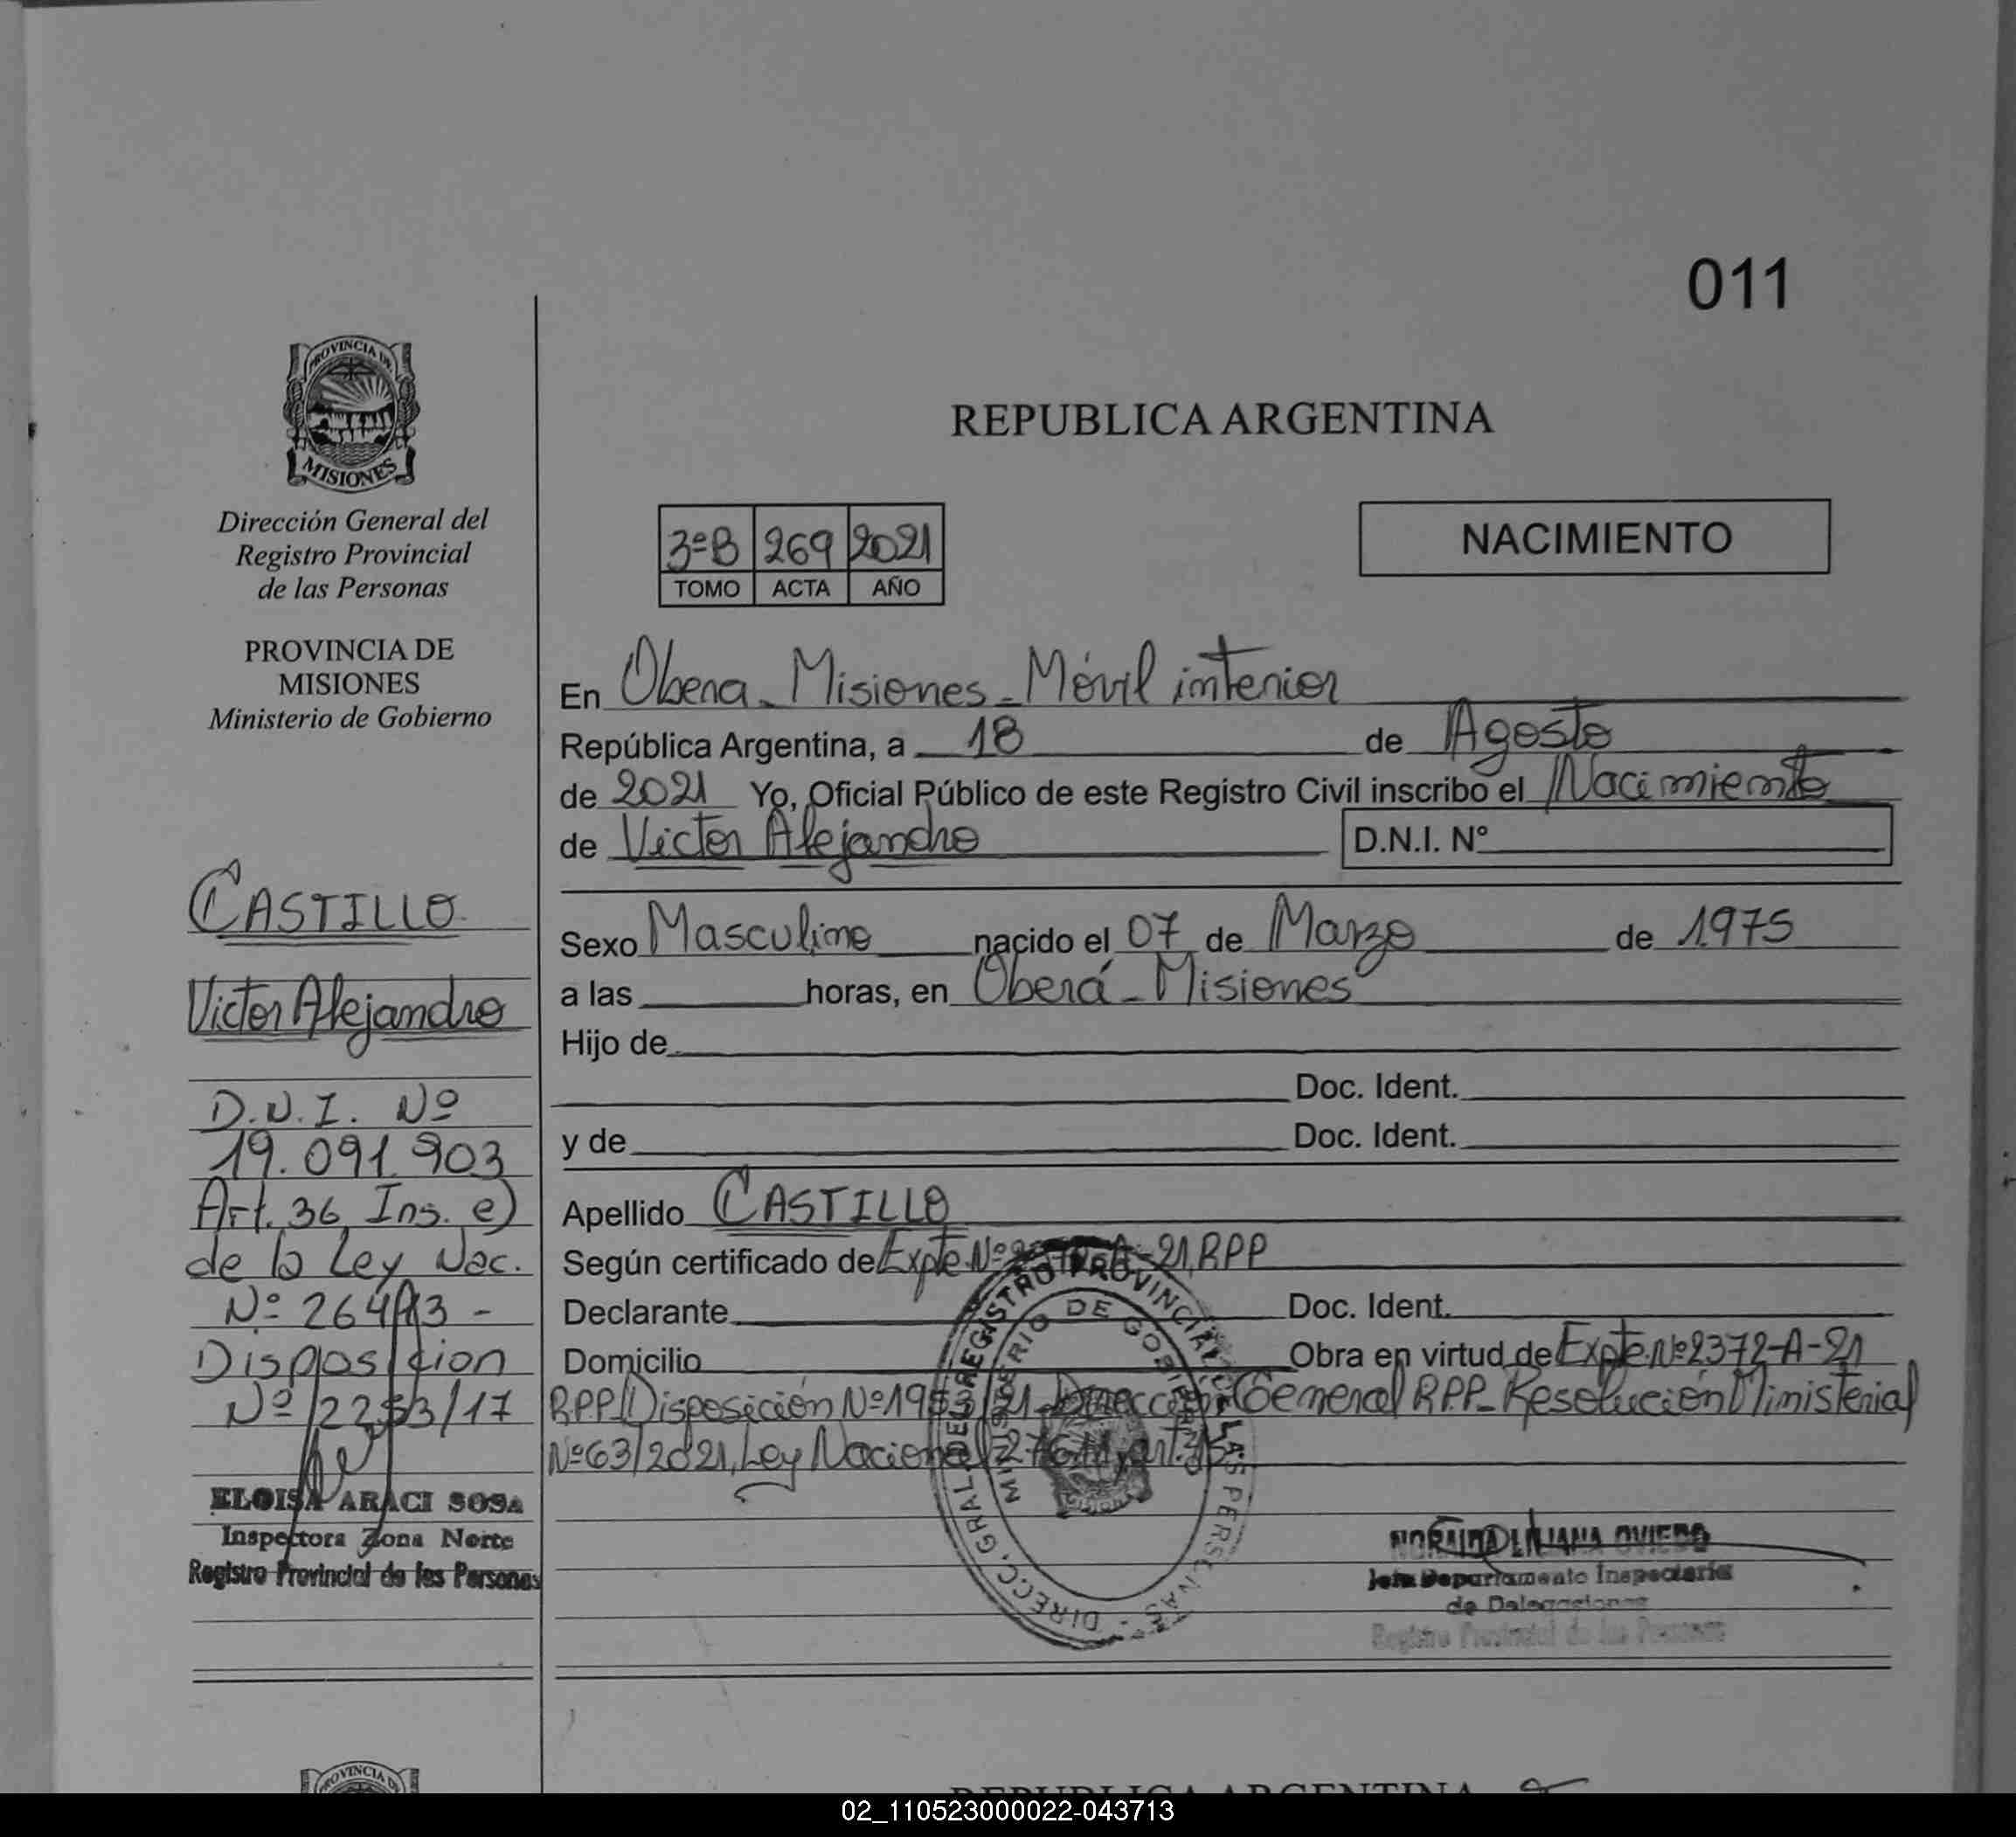 011
PROVINCIA DE
MISIONES
Dirección General del
Registro Provincial
de las Personas
PROVINCIA DE
MISIONES
Ministerio de Gobierno
CASTILLO
Victor Alejandro
D.N.I. Nº
19.091.903
Art. 36, Ins. e)
de la Ley Nac.
Nº 26413 -
Disposicion
Nº 2253/17
ELOISA ARACI SOSA
Inspectora Zona Norte
Registro Provincial de las Personas
REPUBLICA ARGENTINA
3ºB 269 2021
TOMO ACTA AÑO
NACIMIENTO
En Obera - Misiones - Móvil interior
República Argentina, a 18 de Agosto
de 2021 Yo, Oficial Público de este Registro Civil inscribo el Nacimiento
de Victor Alejandro D.N.I. Nº
Sexo Masculino nacido el 07 de Marzo de 1975
a las horas, en Oberá - Misiones
Hijo de
Doc. Ident.
y de Doc. Ident.
Apellido CASTILLO
Según certificado de Expte. Nº A-21, RPP
Declarante Doc. Ident.
Domicilio Obra en virtud de Expte. Nº 2372-A-21
RPP Disposición Nº 1953/21 - Dirección General R.P.P. - Resolución Ministerial
Nº 63/2021, Ley Nacional art.
DIRECC. GRAL. DEL REGISTRO PROVINCIAL DE LAS PERSONAS
MINISTERIO DE GOBIERNO
LILIANA OVIEDO
Jefa Departamento Inspectoría
de Delegaciones
Registro Provincial de las Personas
PROVINCIA DE
REPUBLICA ARGENTINA
02_110523000022-043713